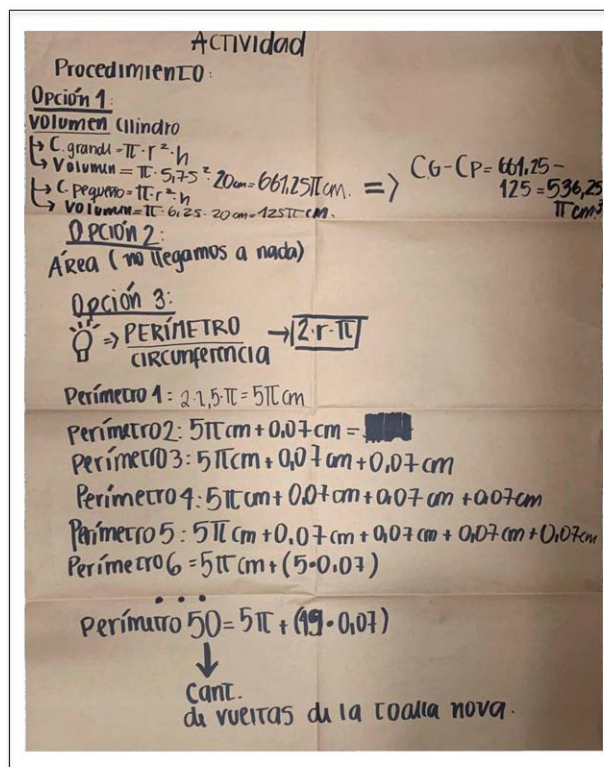 ACTIVIDAD
Procedimiento:
Opción 1:
Volumen Cilindro
↳ C. grande = π · r² · h
↳ Volumen = π · 5,75² · 20cm = 661,25π cm.
↳ C. pequeño = π · r² · h
↳ Volumen = π · 6,25 · 20cm = 125π cm.
=> CG - CP = 661,25 -
125 = 536,25
π cm³
Opción 2:
Área (no llegamos a nada)
Opción 3:
=> PERÍMETRO → 2·r·π
CIRCUNFERENCIA
Perímetro 1: 2·2,5·π = 5π cm
Perímetro 2: 5π cm + 0,07 cm =
Perímetro 3: 5π cm + 0,07 cm + 0,07 cm
Perímetro 4: 5π cm + 0,07 cm + 0,07 cm + 0,07 cm
Perímetro 5: 5π cm + 0,07 cm + 0,07 cm + 0,07 cm + 0,07 cm
Perímetro 6 = 5π cm + (5·0,07)
...
Perímetro 50 = 5π + (49·0,07)
↓
Cant.
de vueltas de la toalla nova.